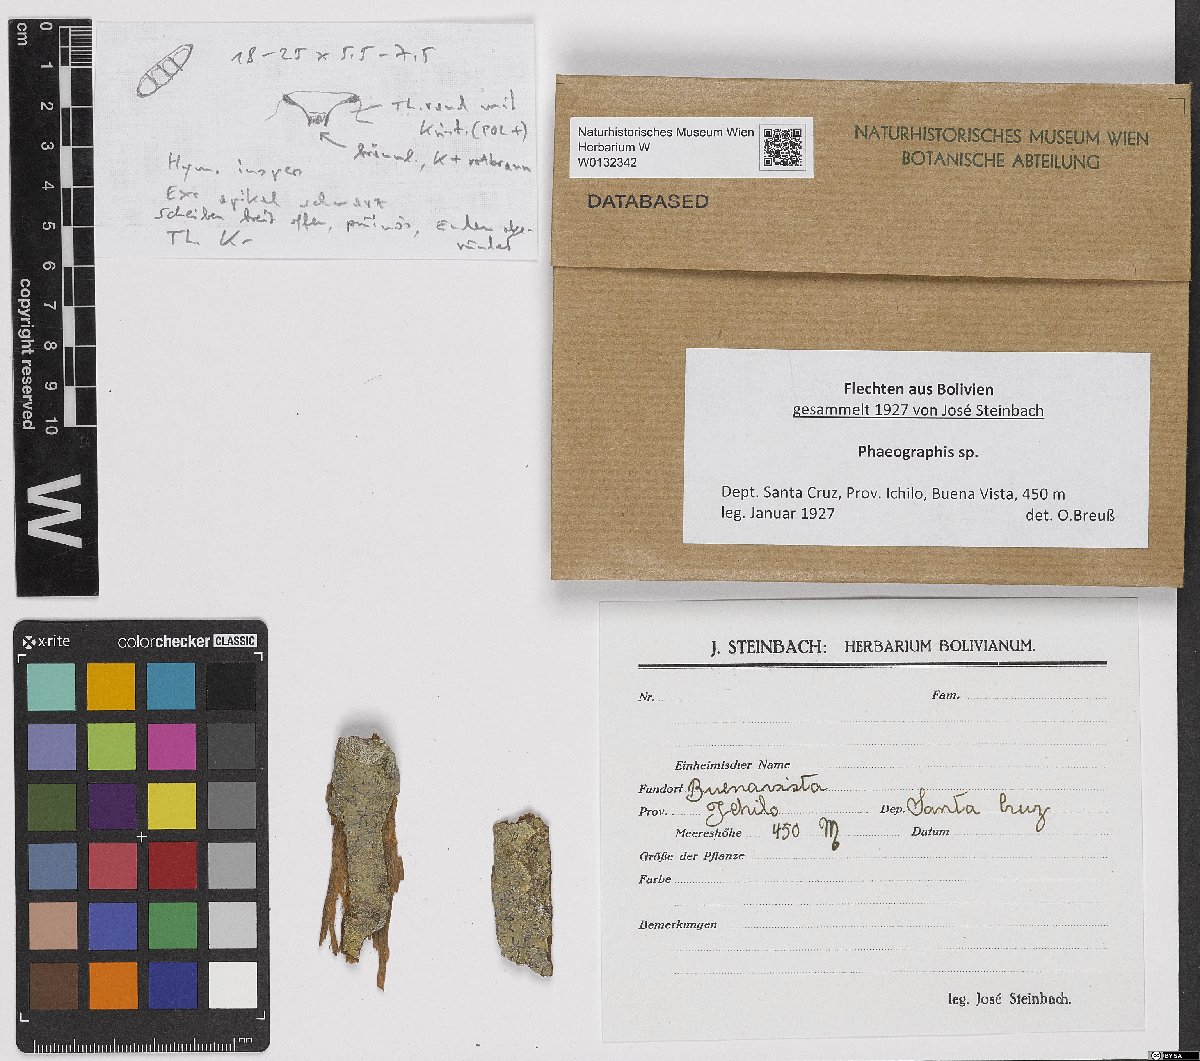 cm
0
1
2
3
4
5
6
7
8
9
10
copyright reserved
W
18-25 x 5,5-7,5
Th.rand mit
Krist. (POL+)
bräunl., K+ rotbraun
Hym. inspers
Exc apikal schwarz
Scheiben breit offen, pruinös, Enden abge-
rundet
Th. K-
Naturhistorisches Museum Wien
Herbarium W
W0132342
NATURHISTORISCHES MUSEUM WIEN
BOTANISCHE ABTEILUNG
DATABASED
Flechten aus Bolivien
gesammelt 1927 von José Steinbach
Phaeographis sp.
Dept. Santa Cruz, Prov. Ichilo, Buena Vista, 450 m
leg. Januar 1927 det. O.Breuß
x-rite colorchecker CLASSIC
mm
J. STEINBACH: HERBARIUM BOLIVIANUM.
Nr. Fam.
Einheimischer Name
Fundort Buenavista
Prov. Ichilo Dep. Santa Cruz
Meereshöhe 450 M Datum
Größe der Pflanze
Farbe
Bemerkungen
leg. José Steinbach.
CC BY SA